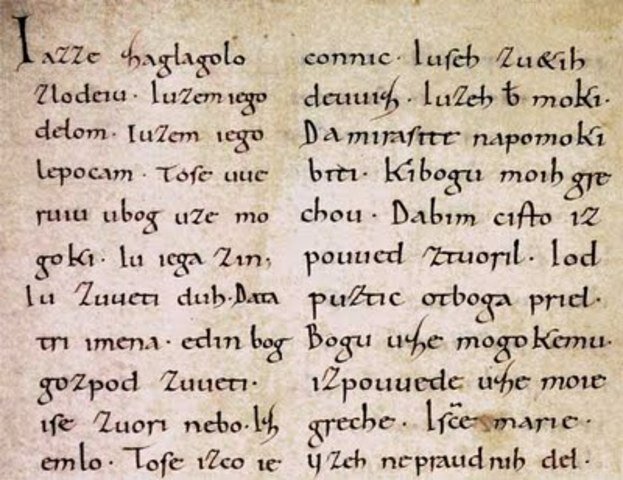 Iazze ſhaglagolo
zlodeiu. Iuzem iego
delom. Iuzem iego
lepocam. Tose uue
ruiu ubog uze mo
goki. Iu iega zin,
Iu zuueti duh. Data
tri imena. edin bog
gozpod zuueti.
ise zuori nebo. Iſh
emlo. Tose izco ie
connic. Iuseh zu&ih
deuuiſh. Iuzeh moki.
Da mi rasite napomoki
biti. Kibogu moih gre
chou. Dabim cisto iz
pouued ztuoril. Iod
puztic otboga priel.
Bogu uſhe mogokemu.
izpouuede uſhe moie
greche. Isc̄e marie.
yzeh nepraudnih del.